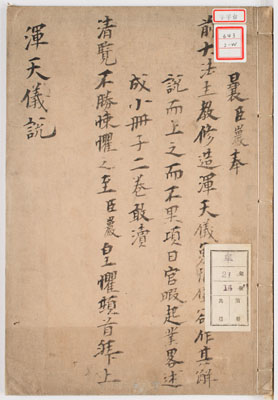 曩臣巖奉
前大法王教修造渾天儀
作其解
說而上之而不果項日官暇起業畧述
成小冊子二卷敢瀆
清覽不勝悚懼之至臣巖皇懼頓首拜上
渾天儀說